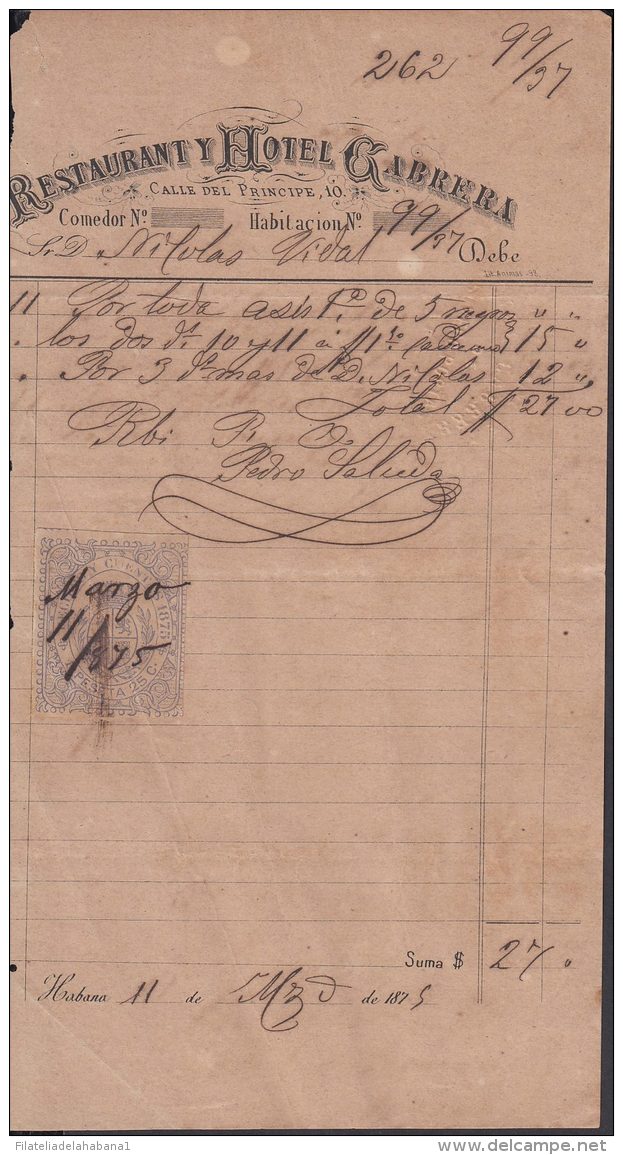 262 99/37
RESTAURANT Y HOTEL CABRERA
CALLE DEL PRINCIPE, 10.
Comedor Nº Habitacion Nº 99/37
Sr. D. Nicolas Vidal Debe
Lit. Animas - 98.
11 Por toda asist.ª de 5 negros " "
los dos d.s 10 y 11 á $1 15 "
Por 3 d.s mas de D. Nicolas 12 "
Total $ 27 00
Rbi P. O.
Pedro
CUENTAS 1875
Marzo
11/875
1 PESETA 25 C.
Suma $ 27 "
Habana 11 de Mzo de 1875
Filateliadelahabana1
www.delcampe.net